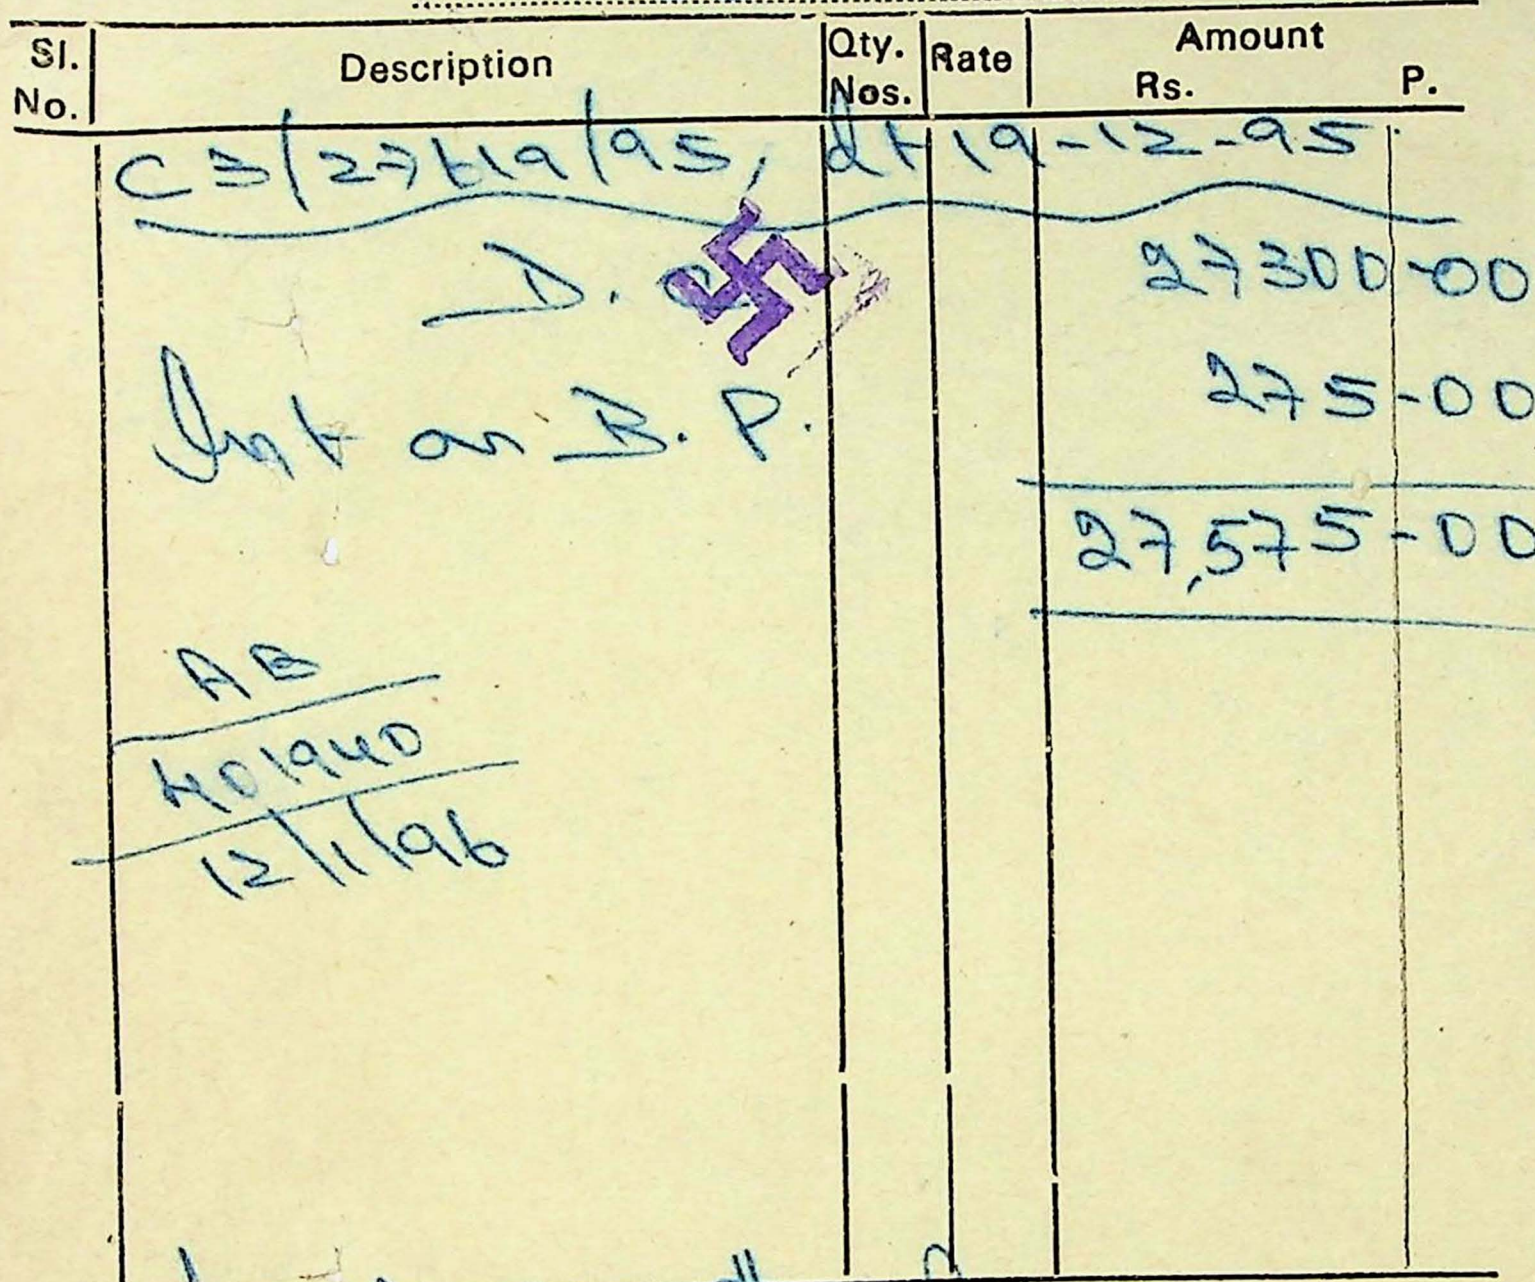 Sl. No. Description Qty. Nos. Rate Amount Rs. P.
C3/27419/95, dt 19-12-95
D. 27300-00
Int on B. P. 275-00
27,575-00
AB
401940
12/1/96